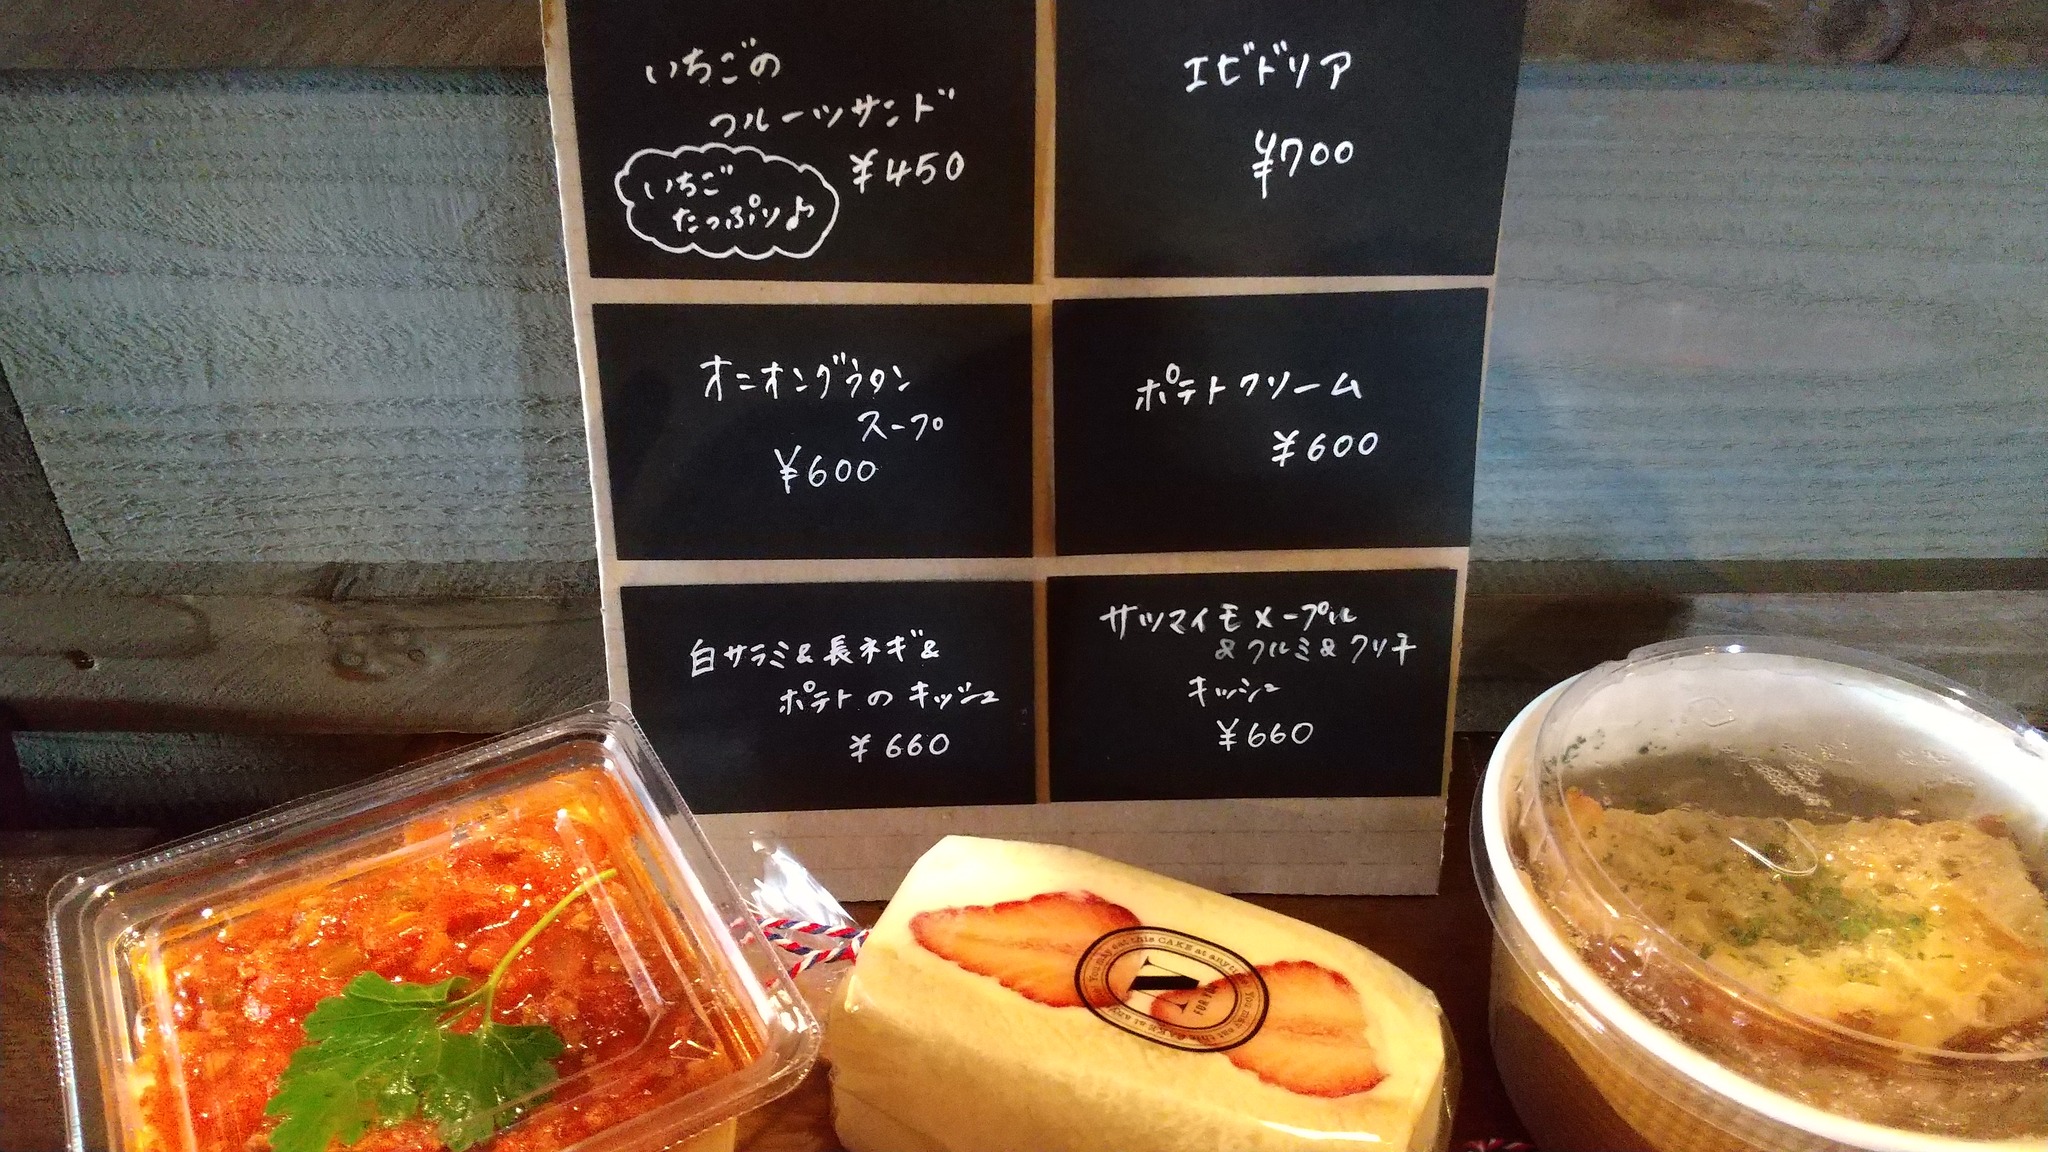 いちごの
フルーツサンド
¥450
いちご
たっぷり♪
エビドリア
¥700
オニオングラタン
スープ
¥600
ポテトクリーム
¥600
白サラミ&長ネギ&
ポテトのキッシュ
¥660
サツマイモメープル
&クルミ&クリチ
キッシュ
¥660
N
FOR YOU
You may eat this CAKE at anytime